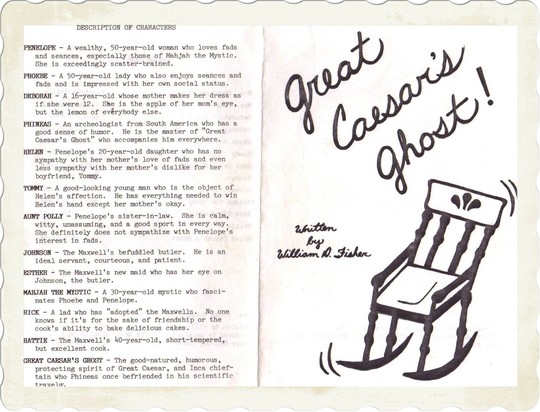 DESCRIPTION OF CHARACTERS
PENELOPE - A wealthy, 50-year-old woman who loves fads
and seances, especially those of Mahjah the Mystic.
She is exceedingly scatter-brained.
PHOEBE - A 50-year-old lady who also enjoys seances and
fads and is impressed with her own social status.
DEBORAH - A 16-year-old whose mother makes her dress as
if she were 12. She is the apple of her mom's eye,
but the lemon of everybody else.
PHINEAS - An archeologist from South America who has a
good sense of humor. He is the master of "Great
Caesar's Ghost" who accompanies him everywhere.
HELEN - Penelope's 20-year-old daughter who has no
sympathy with her mother's love of fads and even
less sympathy with her mother's dislike for her
boyfriend, Tommy.
TOMMY - A good-looking young man who is the object of
Helen's affection. He has everything needed to win
Helen's hand except her mother's okay.
AUNT POLLY - Penelope's sister-in-law. She is calm,
witty, unassuming, and a good sport in every way.
She definitely does not sympathize with Penelope's
interest in fads.
JOHNSON - The Maxwell's befuddled butler. He is an
ideal servant, courteous, and patient.
ESTHER - The Maxwell's new maid who has her eye on
Johnson, the butler.
MAHJAH THE MYSTIC - A 30-year-old mystic who fasci-
mates Phoebe and Penelope.
RICK - A lad who has "adopted" the Maxwells. No one
knows if it's for the sake of friendship or the
cook's ability to bake delicious cakes.
HATTIE - The Maxwell's 40-year-old, short-tempered,
but excellent cook.
GREAT CAESAR'S GHOST - The good-natured, humorous,
protecting spirit of Great Caesar, and Inca chief-
tain who Phineas once befriended in his scientific
travels.
Great
Caesar's
Ghost!
Written
by
William D. Fisher